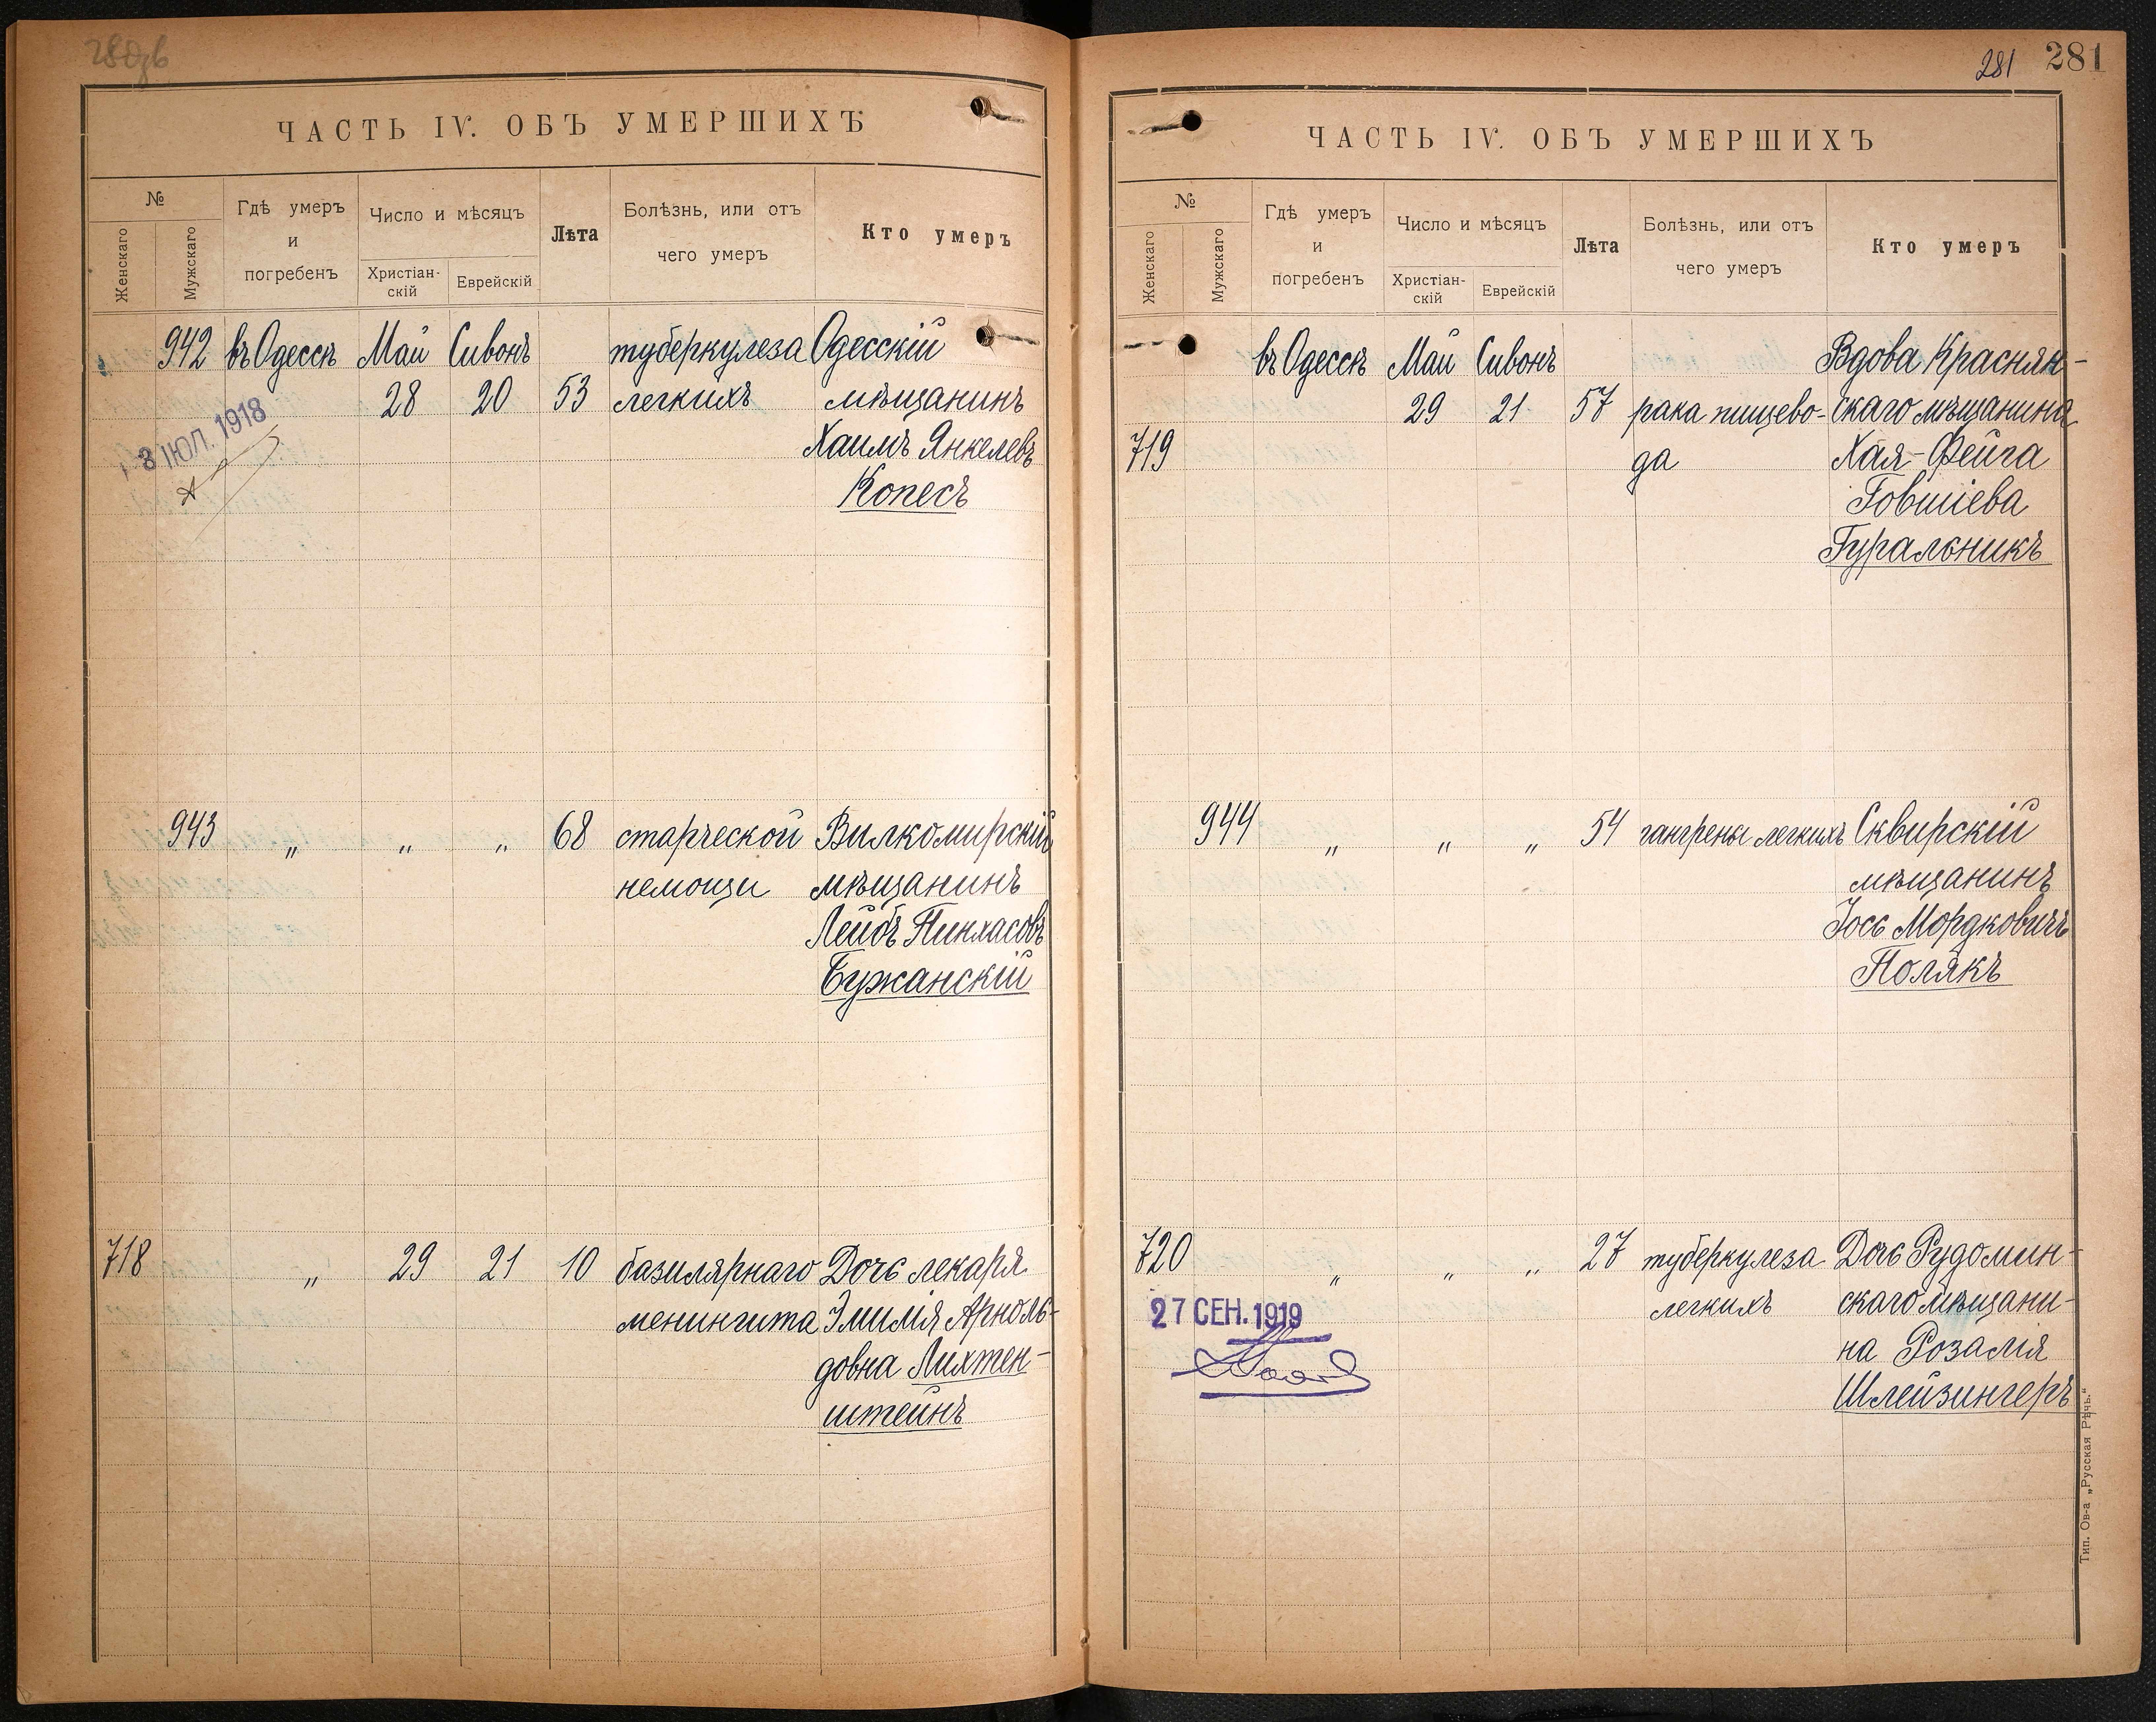 281 281
ЧАСТЬ IV. ОБЪ УМЕРШИХЪ
№
Женскаго
Мужскаго
Гдѣ умеръ
и
погребенъ
Число и мѣсяцъ
Христіан-
скій
Еврейскій
Лѣта
Болѣзнь, или отъ
чего умеръ
Кто умеръ
942 въ Одессѣ Май Сивонъ туберкулеза Одесскій
28 20 53 легкихъ мѣщанинъ
8 ІЮЛ. 1918
Хаимъ Янкелевъ
Копесъ
943 „ „ „ 68 старческой Вилкомирскій
немощи мѣщанинъ
Лейбъ Пинхасовъ
Бужанскій
718 „ 29 21 10 базилярнаго Дочь лекаря
менингита Эмилія Арноль-
довна Лихтен-
штейнъ
ЧАСТЬ IV. ОБЪ УМЕРШИХЪ
№
Женскаго
Мужскаго
Гдѣ умеръ
и
погребенъ
Число и мѣсяцъ
Христіан-
скій
Еврейскій
Лѣта
Болѣзнь, или отъ
чего умеръ
Кто умеръ
въ Одессѣ Май Сивонъ Вдова Краснян-
29 21 57 рака пищево- скаго мѣщанина
719 да Хая-Фейга
Говшіева
Гуральникъ
944 „ „ „ 54 гангрены легкихъ Сквирскій
мѣщанинъ
Іось Мордковичъ
Полякъ
720 „ „ „ 27 туберкулеза Дочь Рудомин-
легкихъ скаго мѣщани-
27 СЕН. 1919
на Розалія
Шлейзингеръ
Тип. Ов-а „Русская Рѣчь.“